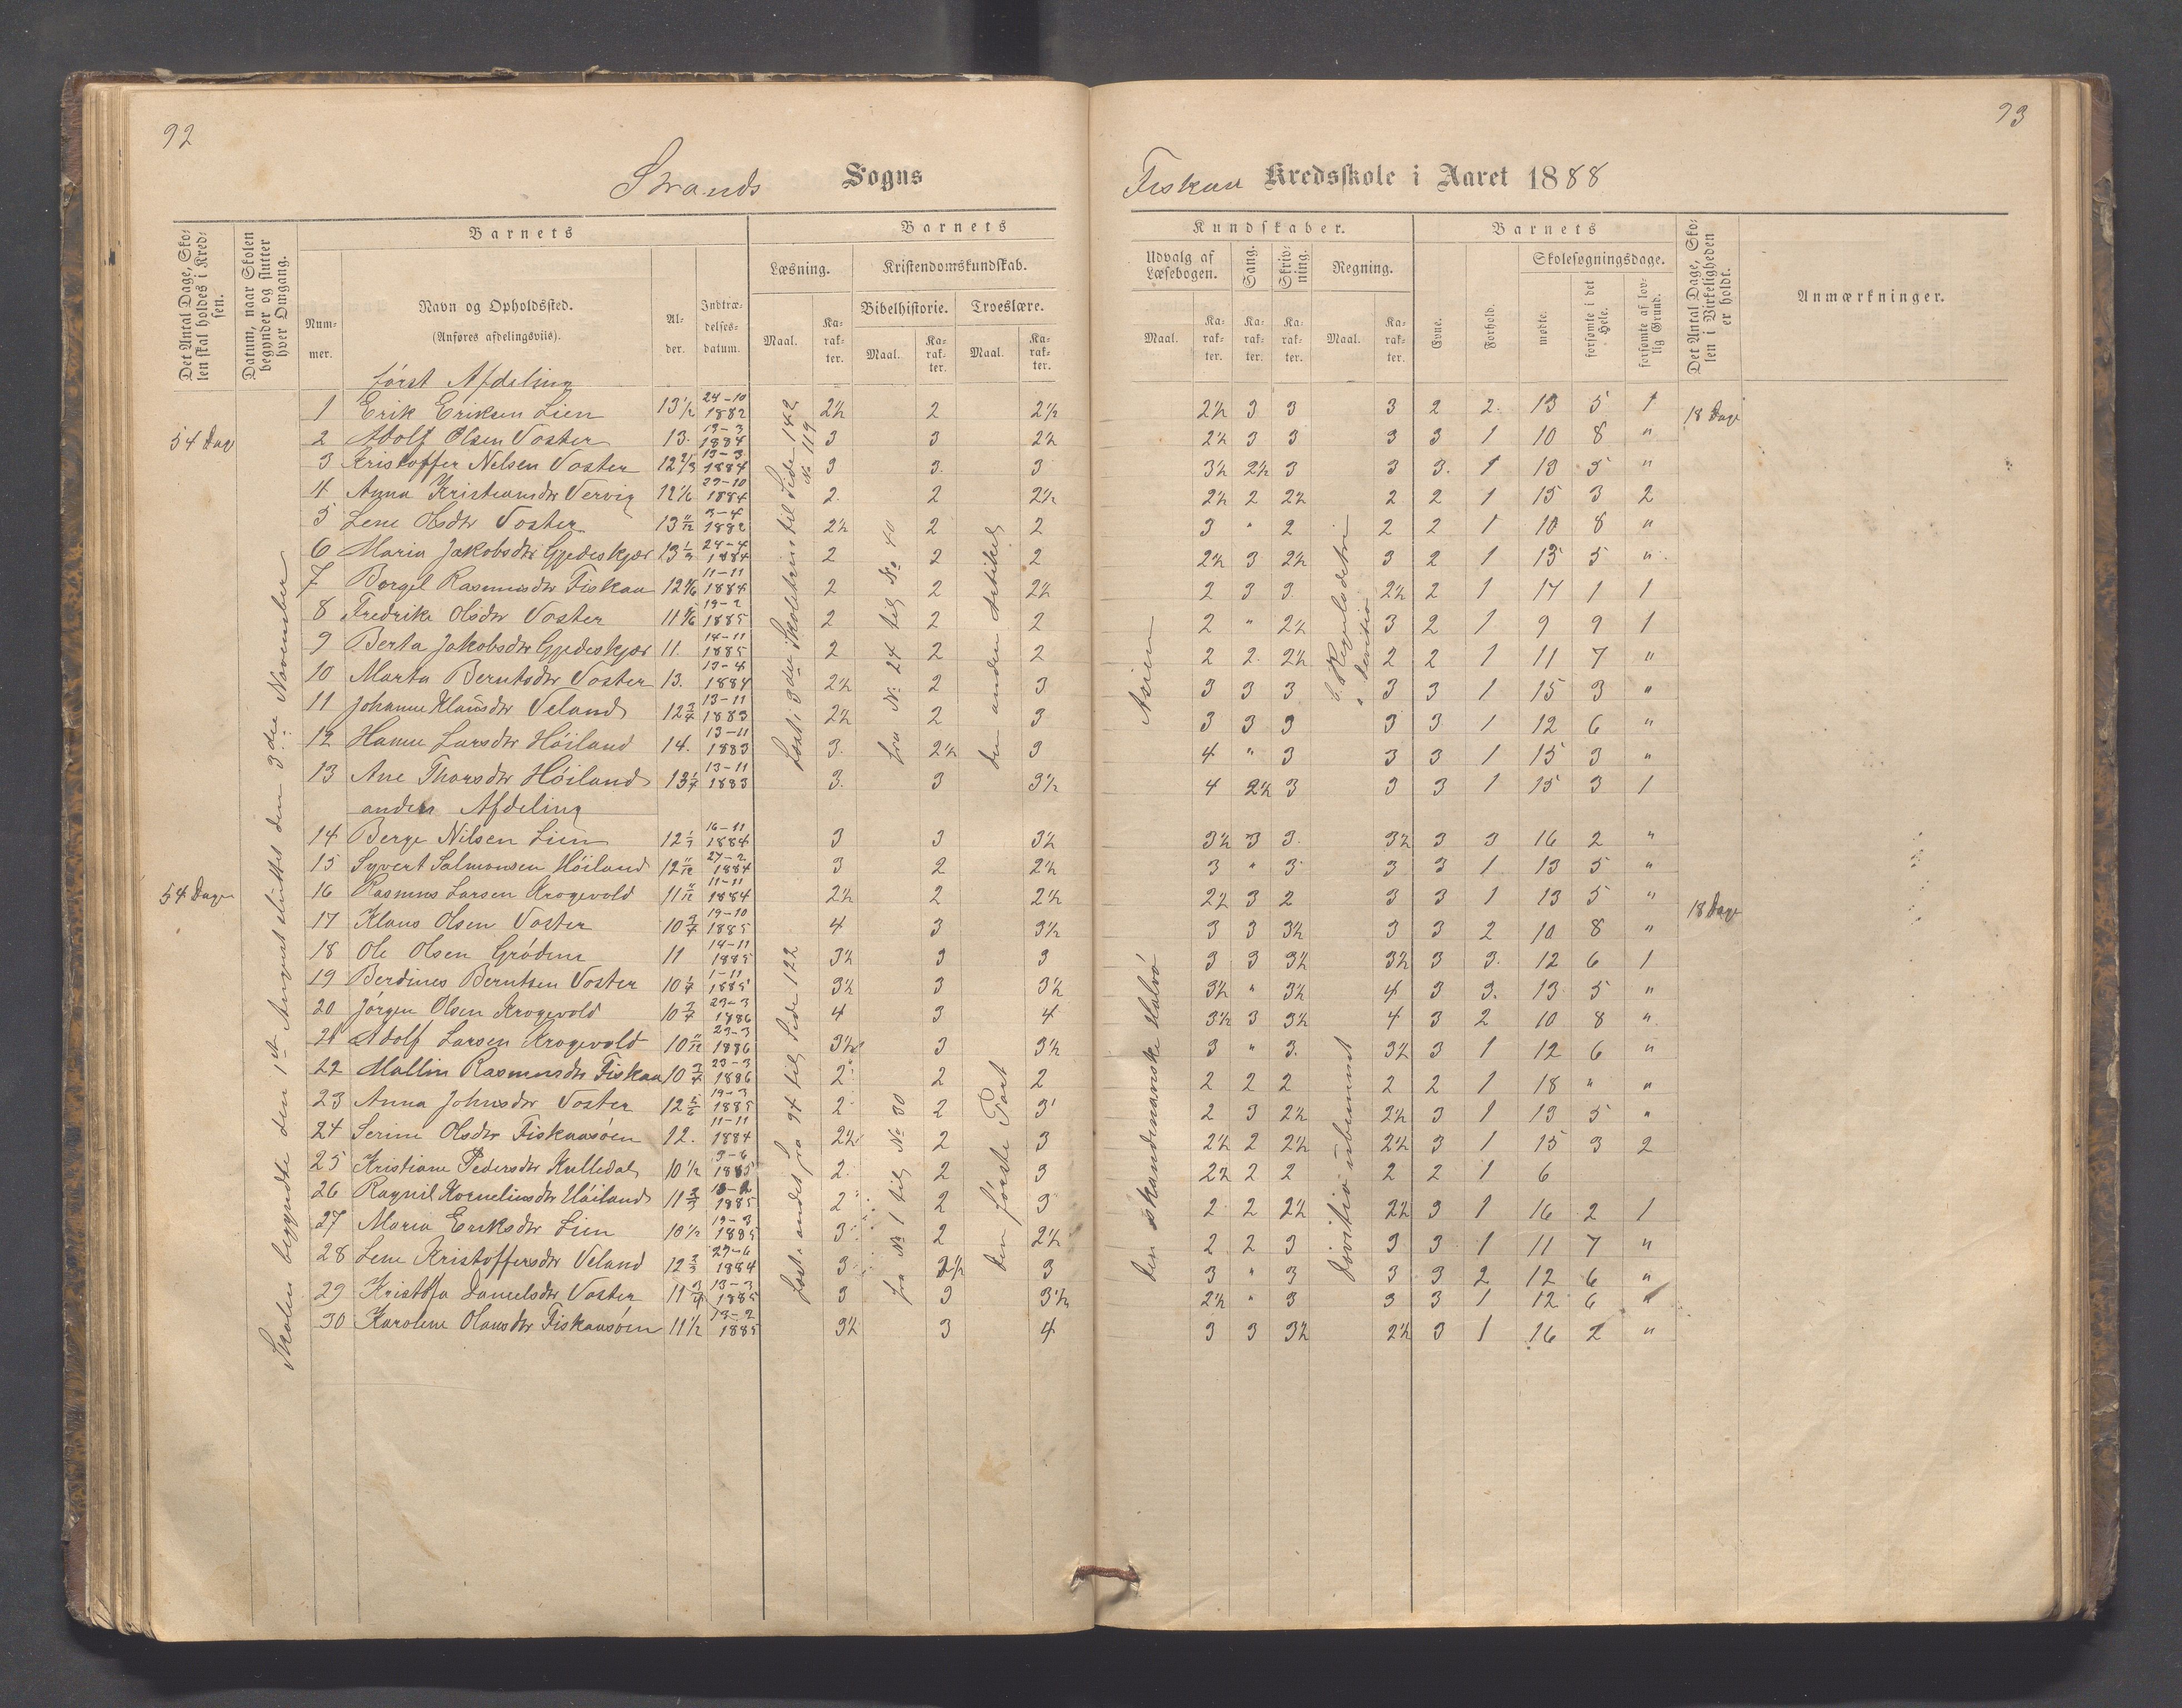 92
93
Strands Sogns
Fiskaa Kredsskole i Aaret 1888
Det Antal Dage, Skolen skal holdes i Kredsen.
Datum, naar Skolen begynder og slutter hver Omgang.
Barnets
Nummer.
Navn og Opholdssted.
(Anføres afdelingsviis).
Alder.
Indtrædelsesdatum.
Barnets
Læsning.
Maal.
Karakter.
Kristendomskundskab.
Bibelhistorie.
Maal.
Karakter.
Troeslære.
Maal.
Karakter.
Kundskaber.
Udvalg af Læsebogen.
Maal.
Karakter.
Sang.
Karakter.
Skrivning.
Karakter.
Regning.
Maal.
Karakter.
Barnets
Evne.
Forhold.
Skolesøgningsdage.
mødte.
forsømte i det Hele.
forsømte af lovlig Grund.
Det Antal Dage, Skolen i Virkeligheden er holdt.
Anmærkninger.
først Afdeling
54 Dage
Skolen begyndte den 1st August sluttet den 3die November
18 Dage
1 Erik Eriksen Lien 13 1/2 24-10 1882 2½ 2 2½ 2½ 3 3 3 2 2 13 5 1
2 Adolf Olsen Voster 13. 13-3 1884 3 3 2½ 2½ 3 3 3 3 1 10 8 "
3 Kristoffer Nelsen Voster 12 2/3 13-3 1884 3 3. 3 3½ 2½ 3 3 3. 1 13 5 "
4 Anna Kristiansdtr Vervig 12 1/6 29-10 1884 2. 2 2½ 2½ 2 2½ 2 2 1 15 3 2
5 Lene Olsdtr Voster 13 11/12 3-4 1882 2½ 2 2 3 " 2 2 2 1 10 8 "
6 Maria Jakobsdtr Gjedeskjær 13 1/3 24-4 1884 2 2 2 2½ 3 2½ 3 2 1 13 5 "
7 Borgel Rasmusdtr Fiskaa 12 1/6 11-11 1884 2 2 2½ 2 3 3. 2½ 2 1 17 1 1
8 Fredrike Olsdtr Voster 11 5/6 19-2 1885 2 2 2 2 " 2½ 3 2 1 9 9 1
9 Berta Jakobsdtr Gjedeskjær 11. 14-11 1885 2 2 2 2 2. 2½ 2 2 1 11 7 "
10 Marta Berntsdtr Voster 13. 13-4 1884 2½ 2 3 3 3 3 3 3 1 15 3 "
11 Johanne Klausdtr Veland 12 3/4 13-11 1883 2½ 2 3 3 3 3 3 3 1 12 6 "
12 Hanne Larsdtr Höiland 14. 13-11 1883 3. 2½ 3 4 " 3 3 3 1 15 3 "
13 Ane Thorsdtr Höiland 13 1/4 13-11 1883 3. 3 3½ 4 2½ 3 3 3 1 15 3 1
Læst i 3die Skoletrin til Side 142
No 119
fra No 24 til No 40
den anden Artikel
Asien
S. Reguladetri
i Division
anden Afdeling
54 Dage
18 Dage
14 Berge Nilsen Lien 16-11 1884 3 3 3½ 3½ 3 3. 3½ 3 3 16 2 "
15 Syvert Salmonsen Höiland 12 11/12 27-2 1884 3 2 2½ 3 " 3 3 3 1 13 5 "
16 Rasmus Larsen Krogevold 11 11/12 11-11 1884 2½ 2 2½ 2½ 3 2 3 3 1 13 5 "
17 Klaus Olsen Voster 10 3/4 19-10 1885 4 3 3½ 3 3 3½ 3 3 2 10 8 "
18 Ole Olsen Grödem 11 14-11 1885 3½ 3 3 3 3 3½ 3½ 3 3. 12 6 1
19 Berdines Berntsen Voster 10 1/4 1-11 1885 3½ 3 3½ 3½ " 3½ 4 3 3. 13 5 "
20 Jörgen Olsen Krogevold 10 3/4 23-3 1886 4 3 4 3½ 3 3½ 4 3 2 10 8 "
21 Adolf Larsen Krogevold 10 11/12 23-3 1886 3½ 3 3½ 3 " 3. 3½ 3 1 12 6 "
22 Mallin Rasmusdtr Fiskaa 10 3/4 23-3 1886 2 2 2 2 2 2 2 2 1 18 " "
23 Anna Johnsdtr Voster 12 1/6 19-3 1885 2 2 3 2 3 2½ 2½ 3 1 13 5 "
24 Serine Olsdtr Fiskaasöen 12. 11-11 1884 2½ 2 3 2½ 2 2½ 2½ 3 1 15 3 2
25 Kristiane Pedersdtr Kulledal 10 1/2 9-6 1885 2. 2 3 2½ 2 2 2 2 1 6
26 Ragnil Korneliusdtr Höiland 11 2/3 13-2 1885 2 2 3 2 2 2½ 2½ 3 1 16 2 1
27 Maria Eriksdtr Lien 10 1/2 19-3 1885 3 2 2½ 2 2 3 3 3 1 11 7 "
28 Lene Kristoffersdtr Veland 12 2/3 23-6 1884 3 2½ 3 3 " 3 3 3 2 12 6 "
29 Kristoffa Danielsdtr Voster 11 3/4 13-3 1885 3 3 3½ 2½ " 3 3 3 1 12 6 "
30 Karolene Olausdtr Fiskaasöen 11 1/2 13-2 1885 3½ 3 4 3 3 3½ 2½ 3 1 16 2 "
Læst i andet fra 94 til Side 122
fra No 1 til No 30
den förste Part
den skandinaviske Halvö
Division ubenævnt